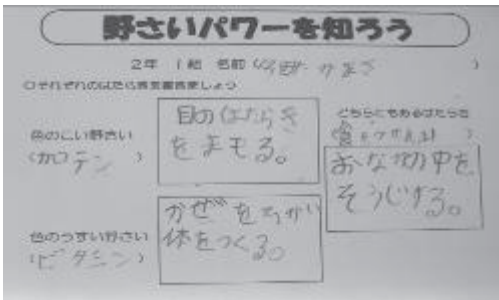 野さいパワーを知ろう
2年 1組 名前(
○それぞれのはたらきを書きましょう
色のこい野さい
(カロテン)
目のはたらき
をまもる。
どちらにもあるはたらき
おなかの中を
そうじする。
色のうすい野さい
(ビタミン)
かぜをちかい
体をつくる。